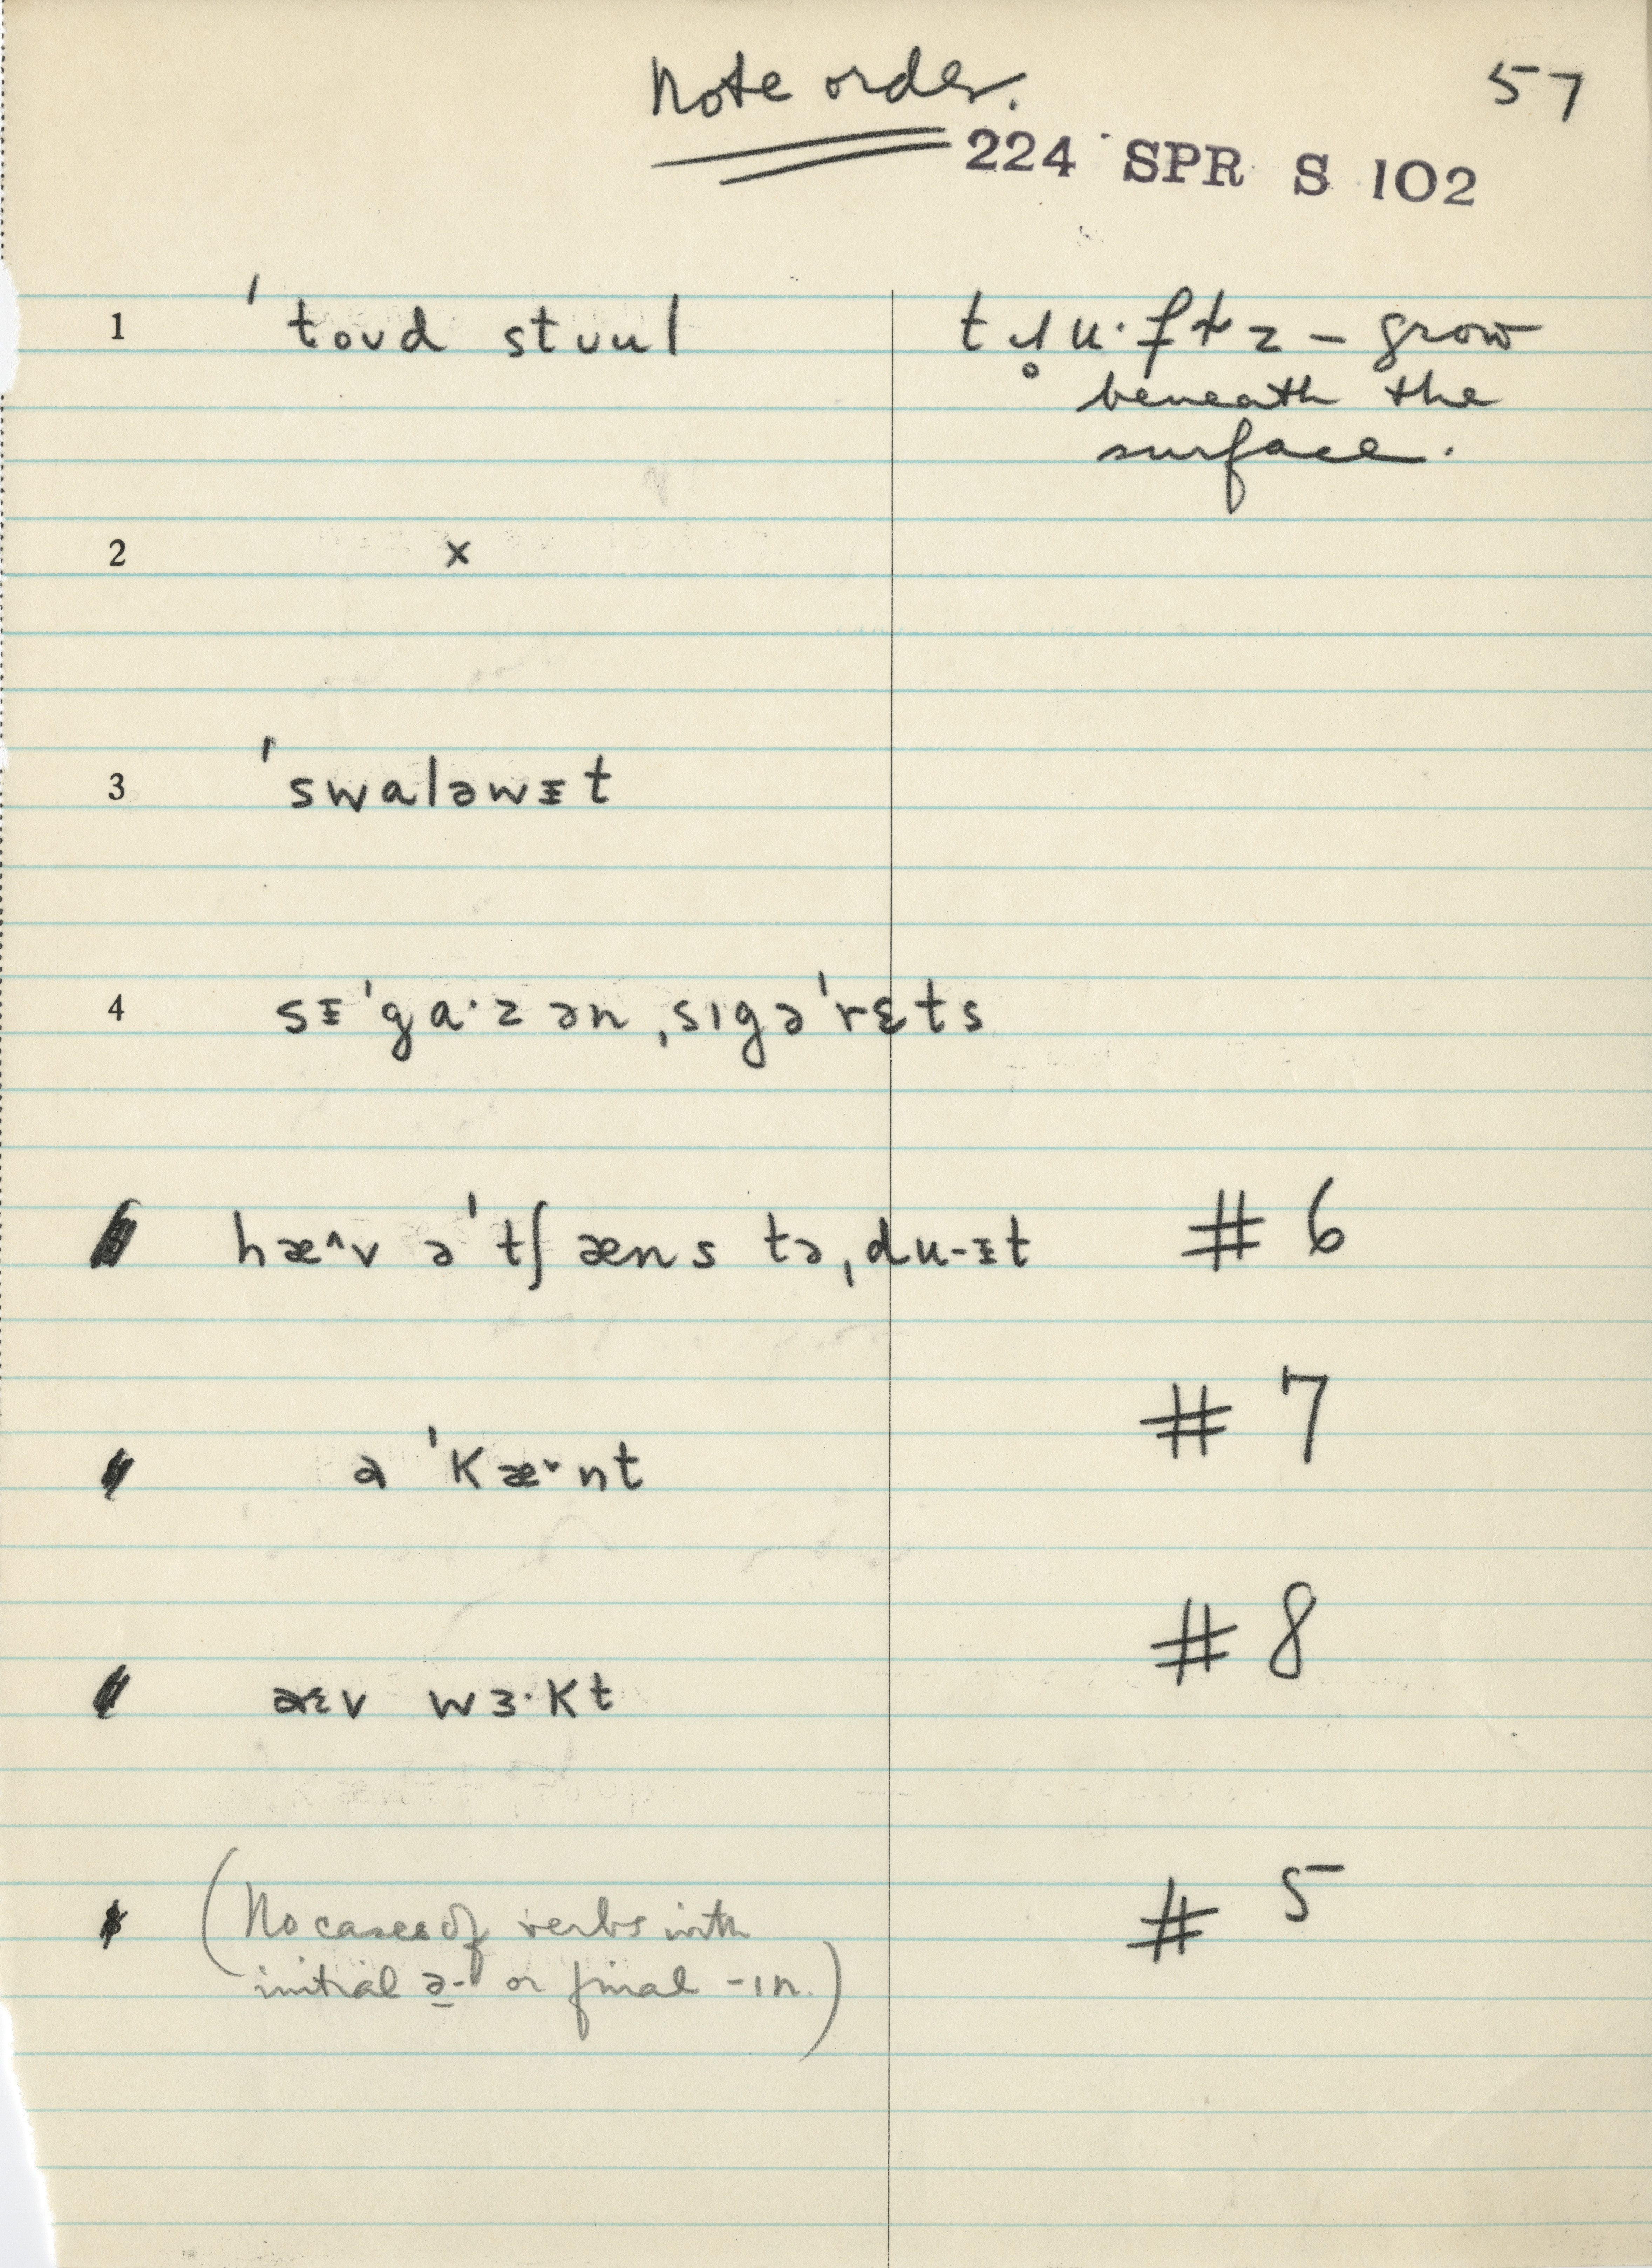 Note order.
57
224 SPR S 102
1 ˈtoʊd stuul
tɹ̥u·ftz – grow
beneath the
surface.
2 x
3 ˈswaləwᵻt
4 sᵻˈga·zən ˌsɪgəˈrɛts
hæ^v əˈtʃæns təˌdu-ᵻt # 6
əˈkæ˅nt # 7
æɛv wɜ·kt # 8
(No cases of verbs with # 5
initial ə- or final -ɪn.)